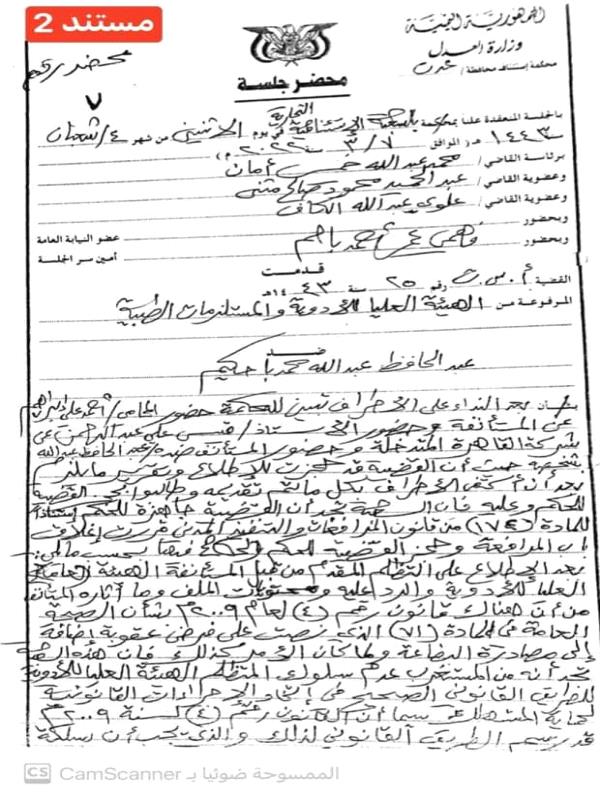 مستند 2
الجمهورية اليمنية
وزارة العدل
محكمة إستئناف محافظة / عدن
محضر رقم
٧
محضر جلسة
بالجلسة المنعقدة علناً بمحكمة بالشعبة الاستئنافية التجارية في يوم الاثنين من شهر ٤/شعبان
سنة ١٤٤٣ هـ (الموافق ٧/٣/٢٠٢٢ م)
برئاسة القاضي / محمد عبدالله أمان
وعضوية القاضي / عبدالحميد محمود صالح مثنى
وعضوية القاضي / علوي عبدالله الكاف
وبحضور / عضو النيابة العامة
وبحضور / فهمي عمر أحمد باهم أمين سر الجلسة
قدمت
القضية أ. س. ت رقم ٢٥ سنة ١٤٤٣هـ
المرفوعة من الهيئة العليا للأدوية والمستلزمات الطبية
ضد
عبدالحافظ عبدالله محمد باحكيم
بعد النداء على الأطراف تبين للمحكمة حضور المحامي/ أحمد علي إبراهيم
عن المستأنفة وحضور الأستاذ/ علي عبدالرحمن عن
شركة القاهرة المتدخلة وحضور المستأنف ضده عبدالحافظ عبدالله
شخصية حيث أن القضية قد حجزت للاطلاع وتقرير ما يلزم
بعد أن أكتفى الأطراف بكل ما تم تقديمه وطالبوا بحجز القضية
للحكم وعليه فإن الشعبة تجد أن القضية جاهزة للحكم إستناداً
للمادة (١٧٤) من قانون المرافعات والتنفيذ المدني قررت إغلاق
باب المرافعة وحجز القضية للحكم فيها بحسب ما يلي:
بعد الاطلاع على التظلم المقدم من قبل المستأنفة الهيئة العامة
العليا للأدوية والرد عليه ومحتويات الملف وما أثاره المستأنف
من أن هناك قانون رقم (٤) لعام ٢٠٠٩م بشأن الصحة
العامة في المادة (٧١) الذي نصت على فرض عقوبة إضافة
إلى مصادرة البضاعة ولما كان الأمر كذلك فإن هذه الشعبة
تجد أنه من المستغرب عدم سلوك المتظلم الهيئة العليا للأدوية
للطريق القانوني الصحيح في إتخاذ الإجراءات القانونية
لحماية المستهلك سيما أن القانون رقم (٤) لسنة ٢٠٠٩م
قد رسم الطريق القانوني لذلك والذي يجب أن يسلكه
CS الممسوحة ضوئيا بـ CamScanner